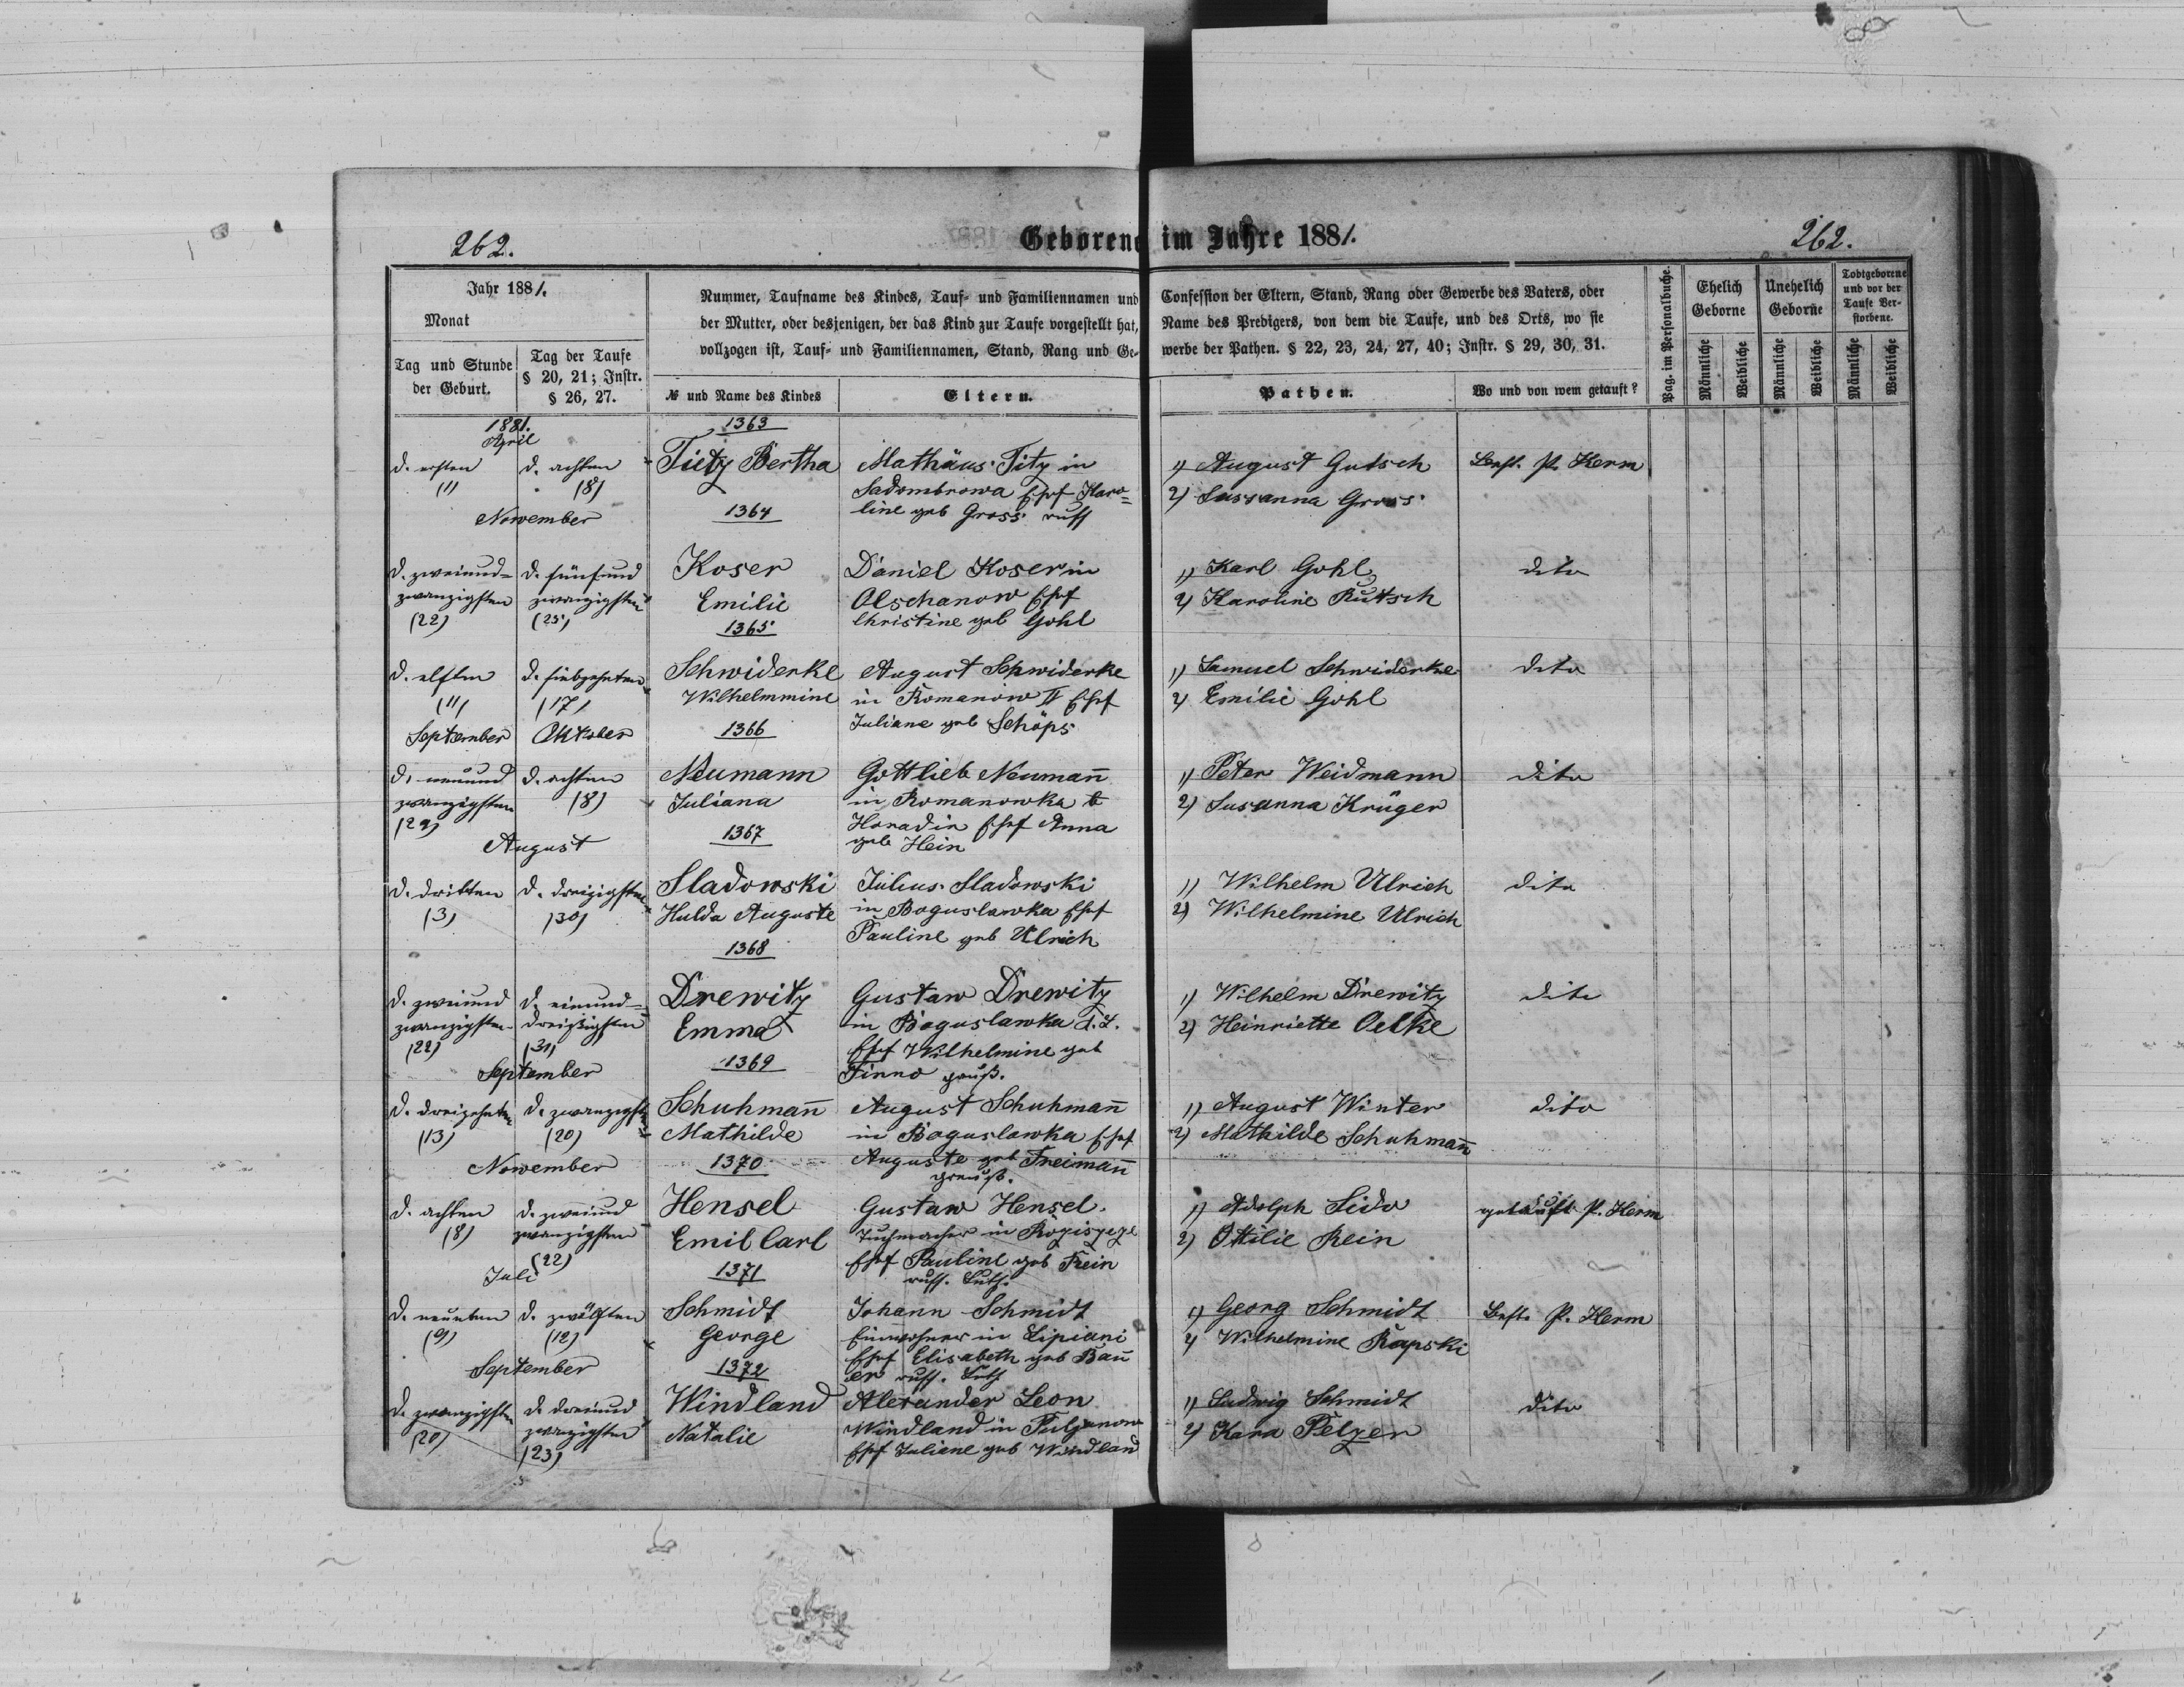 262.
Geborene im Jahre 1881.
262.
Jahr 1881.
Monat
Tag und Stunde der Geburt.
Tag der Taufe § 20, 21; Instr. § 26, 27.
Nummer, Taufname des Kindes, Tauf- und Familiennamen und
der Mutter, oder desjenigen, der das Kind zur Taufe vorgestellt hat,
vollzogen ist, Tauf- und Familiennamen, Stand, Rang und Ge-
№ und Name des Kindes
Eltern.
Confession der Eltern, Stand, Rang oder Gewerbe des Vaters, oder
Name des Predigers, von dem die Taufe, und des Orts, wo sie
werbe der Pathen. § 22, 23, 24, 27, 40; Instr. § 29, 30, 31.
Pathen.
Wo und von wem getauft?
Pag. im Personalbuche.
Ehelich Geborne
Unehelich Geborne
Todtgeborene und vor der Taufe Verstorbene.
Männliche
Weibliche
Männliche
Weibliche
Männliche
Weibliche
1881.
April
1363
d. ersten
(1)
d. achten
(8)
Tietz Bertha
Mathäus Titz in
Sadombrowa Ehef Karo=
line geb Gross russ
1) August Gutsch
2) Sussanna Gross
Best. P. Kerm
November
1364
d. zweiund=
zwanzigsten
(22)
d. fünfund
zwanzigsten
(25)
Koser
Emilie
Daniel Koser in
Olschanow Ehef
Christine geb Gohl
1) Karl Gohl
2) Karoline Rutsch
dito
1365
d. elften
(11)
d. siebzehnten
(17)
Schwiderke
Wilhelmmine
August Schwiderke
in Romanow II Ehef
Juliane geb Schöps
1) Samuel Schwiderke
2) Emilie Gohl
dito
September
Oktober
1366
d. neunund
zwanzigsten
(29)
d. achten
(8)
Neumann
Juliana
Gottlieb Neumañ
in Romanowka b
Horadin Ehef Anna
geb Hein
1) Peter Weidmann
2) Susanna Krüger
dito
August
1367
d. dritten
(3)
d. dreizigsten
(30)
Sladowski
Hulda Auguste
Julius Sladowski
in Boguslawka Ehef
Pauline geb Ulrich
1) Wilhelm Ulrich
2) Wilhelmine Ulrich
dito
1368
d. zweiund
zwanzigsten
(22)
d. einund=
dreißigsten
(31)
Drewitz
Emma
Gustaw Drewitz
in Boguslawka
Ehef Wilhelmine geb
Finno preuß.
1) Wilhelm Drewitz
2) Heinriette Oelke
dito
September
1369
d. dreizehnten
(13)
d. zwanzigsten
(20)
Schuhmañ
Mathilde
August Schuhmañ
in Boguslawka Ehef
Auguste geb Freimañ
preuß.
1) August Winter
2) Mathilde Schuhmañ
dito
November
1370
d. achten
(8)
d. zweiund
zwanzigsten
(22)
Hensel
Emil Carl
Gustaw Hensel
Tuchmacher in Rogiszcze
Ehef Pauline geb Frein
russ. Luth.
1) Adolph Lido
2) Ottilie Rein
getauft P. Kerm
Juli
1371
d. neunten
(9)
d. zwölften
(12)
Schmidt
George
Johann Schmidt
Einwohner in Lipiani
Ehef Elisabeth geb Bau
er russ. Luth
1) Georg Schmidt
2) Wilhelmine Rapski
Best. P. Kerm
September
1372
d. zwanzigsten
(20)
d. dreiund
zwanzigsten
(23)
Windland
Natalie
Alexander Leon
Windland in Tulzanow
Ehef Juliane geb Windland
1) Ludwig Schmidt
2) Kara Pelzer
dito